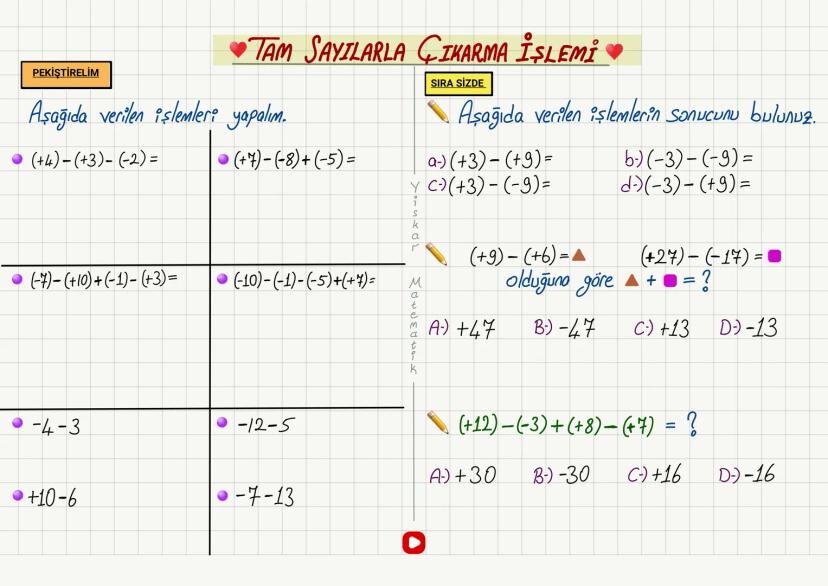 TAM SAYILARLA ÇIKARMA İŞLEMİ
PEKİŞTİRELİM
Aşağıda verilen işlemleri yapalım.
(+4)-(+3)-(-2)=
(+7)-(-8)+(-5)=
(-7)-(+10)+(-1)-(+3)=
(-10)-(-1)-(-5)+(+7)=
-4-3
-12-5
+10-6
-7-13
Yiskar Matematik
SIRA SİZDE
Aşağıda verilen işlemlerin sonucunu bulunuz.
a-)(+3)-(+9)=
b-)(-3)-(-9)=
c-)(+3)-(-9)=
d-)(-3)-(+9)=
(+9)-(+6)=
(+27)-(-17)=
olduğuna göre + = ?
A-) +47 B-) -47 C-) +13 D-) -13
(+12)-(-3)+(+8)-(+7) = ?
A-) +30 B-) -30 C-) +16 D-) -16